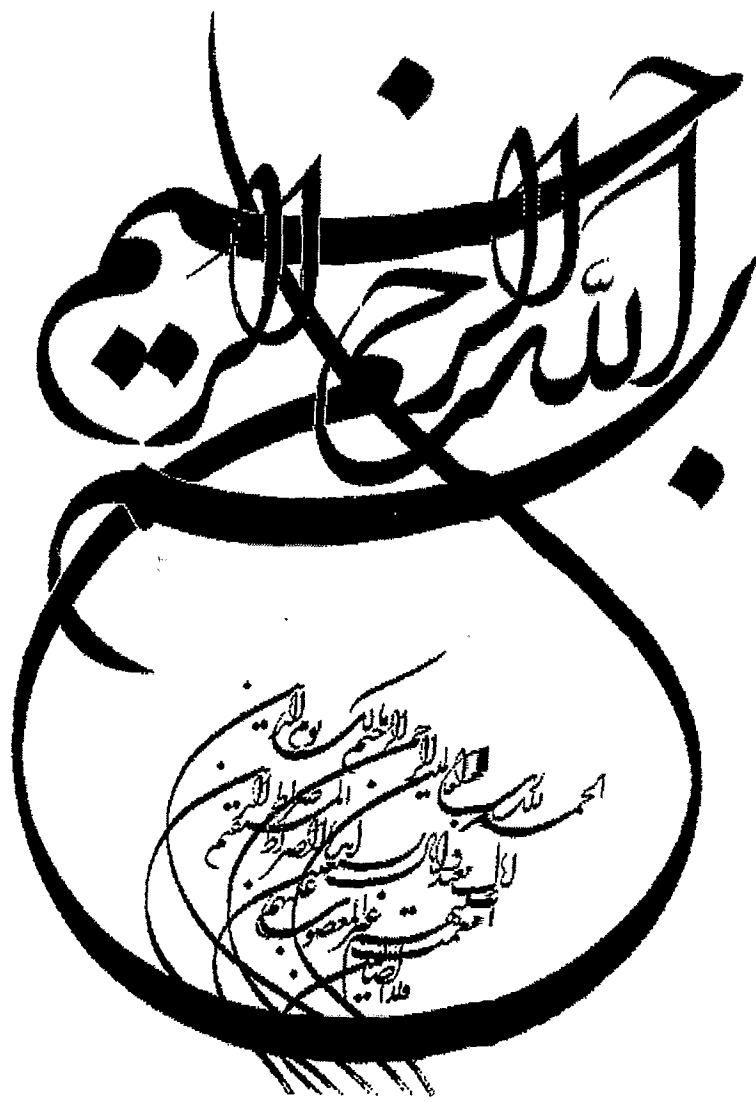 بسم الله الرحمن الرحيم
الحمد لله رب العالمین الرحمن الرحیم مالک یوم الدین
ایاک نعبد و ایاک نستعین اهدنا الصراط المستقیم صراط الذین
انعمت علیهم غیر المغضوب علیهم
ولا الضالین